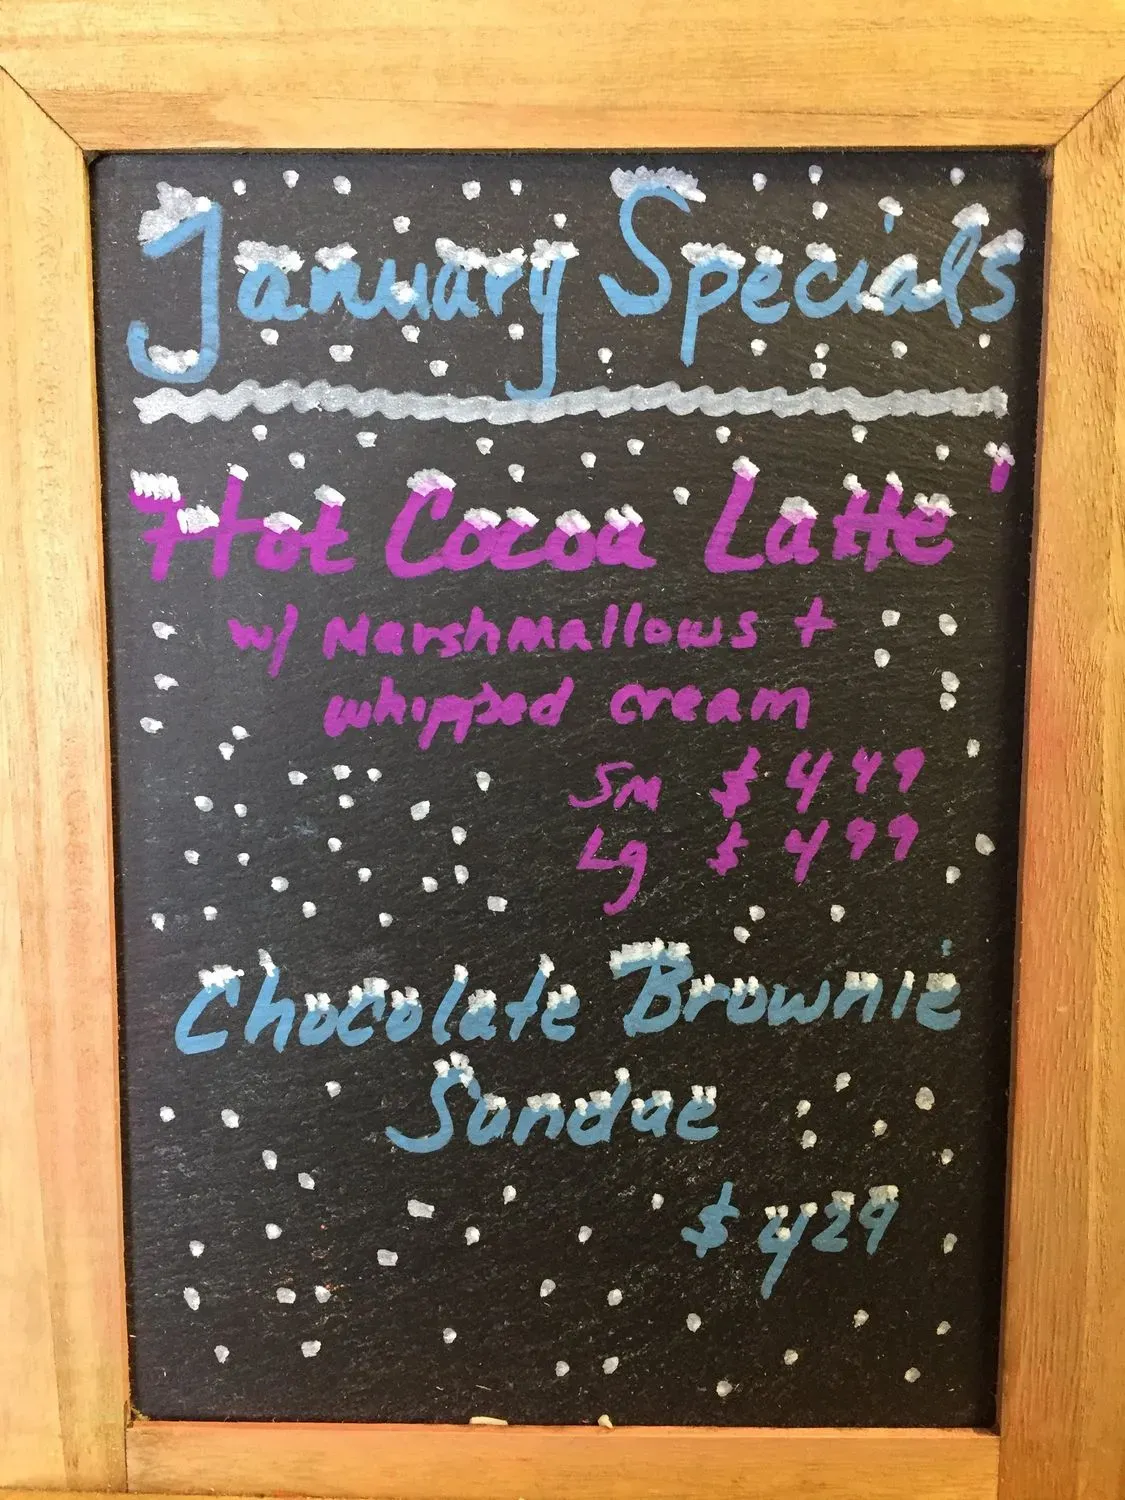 January Specials
Hot Cocoa Latte'
w/ Marshmallows +
whipped cream
Sm $449
Lg $499
Chocolate Brownie
Sundae
$429